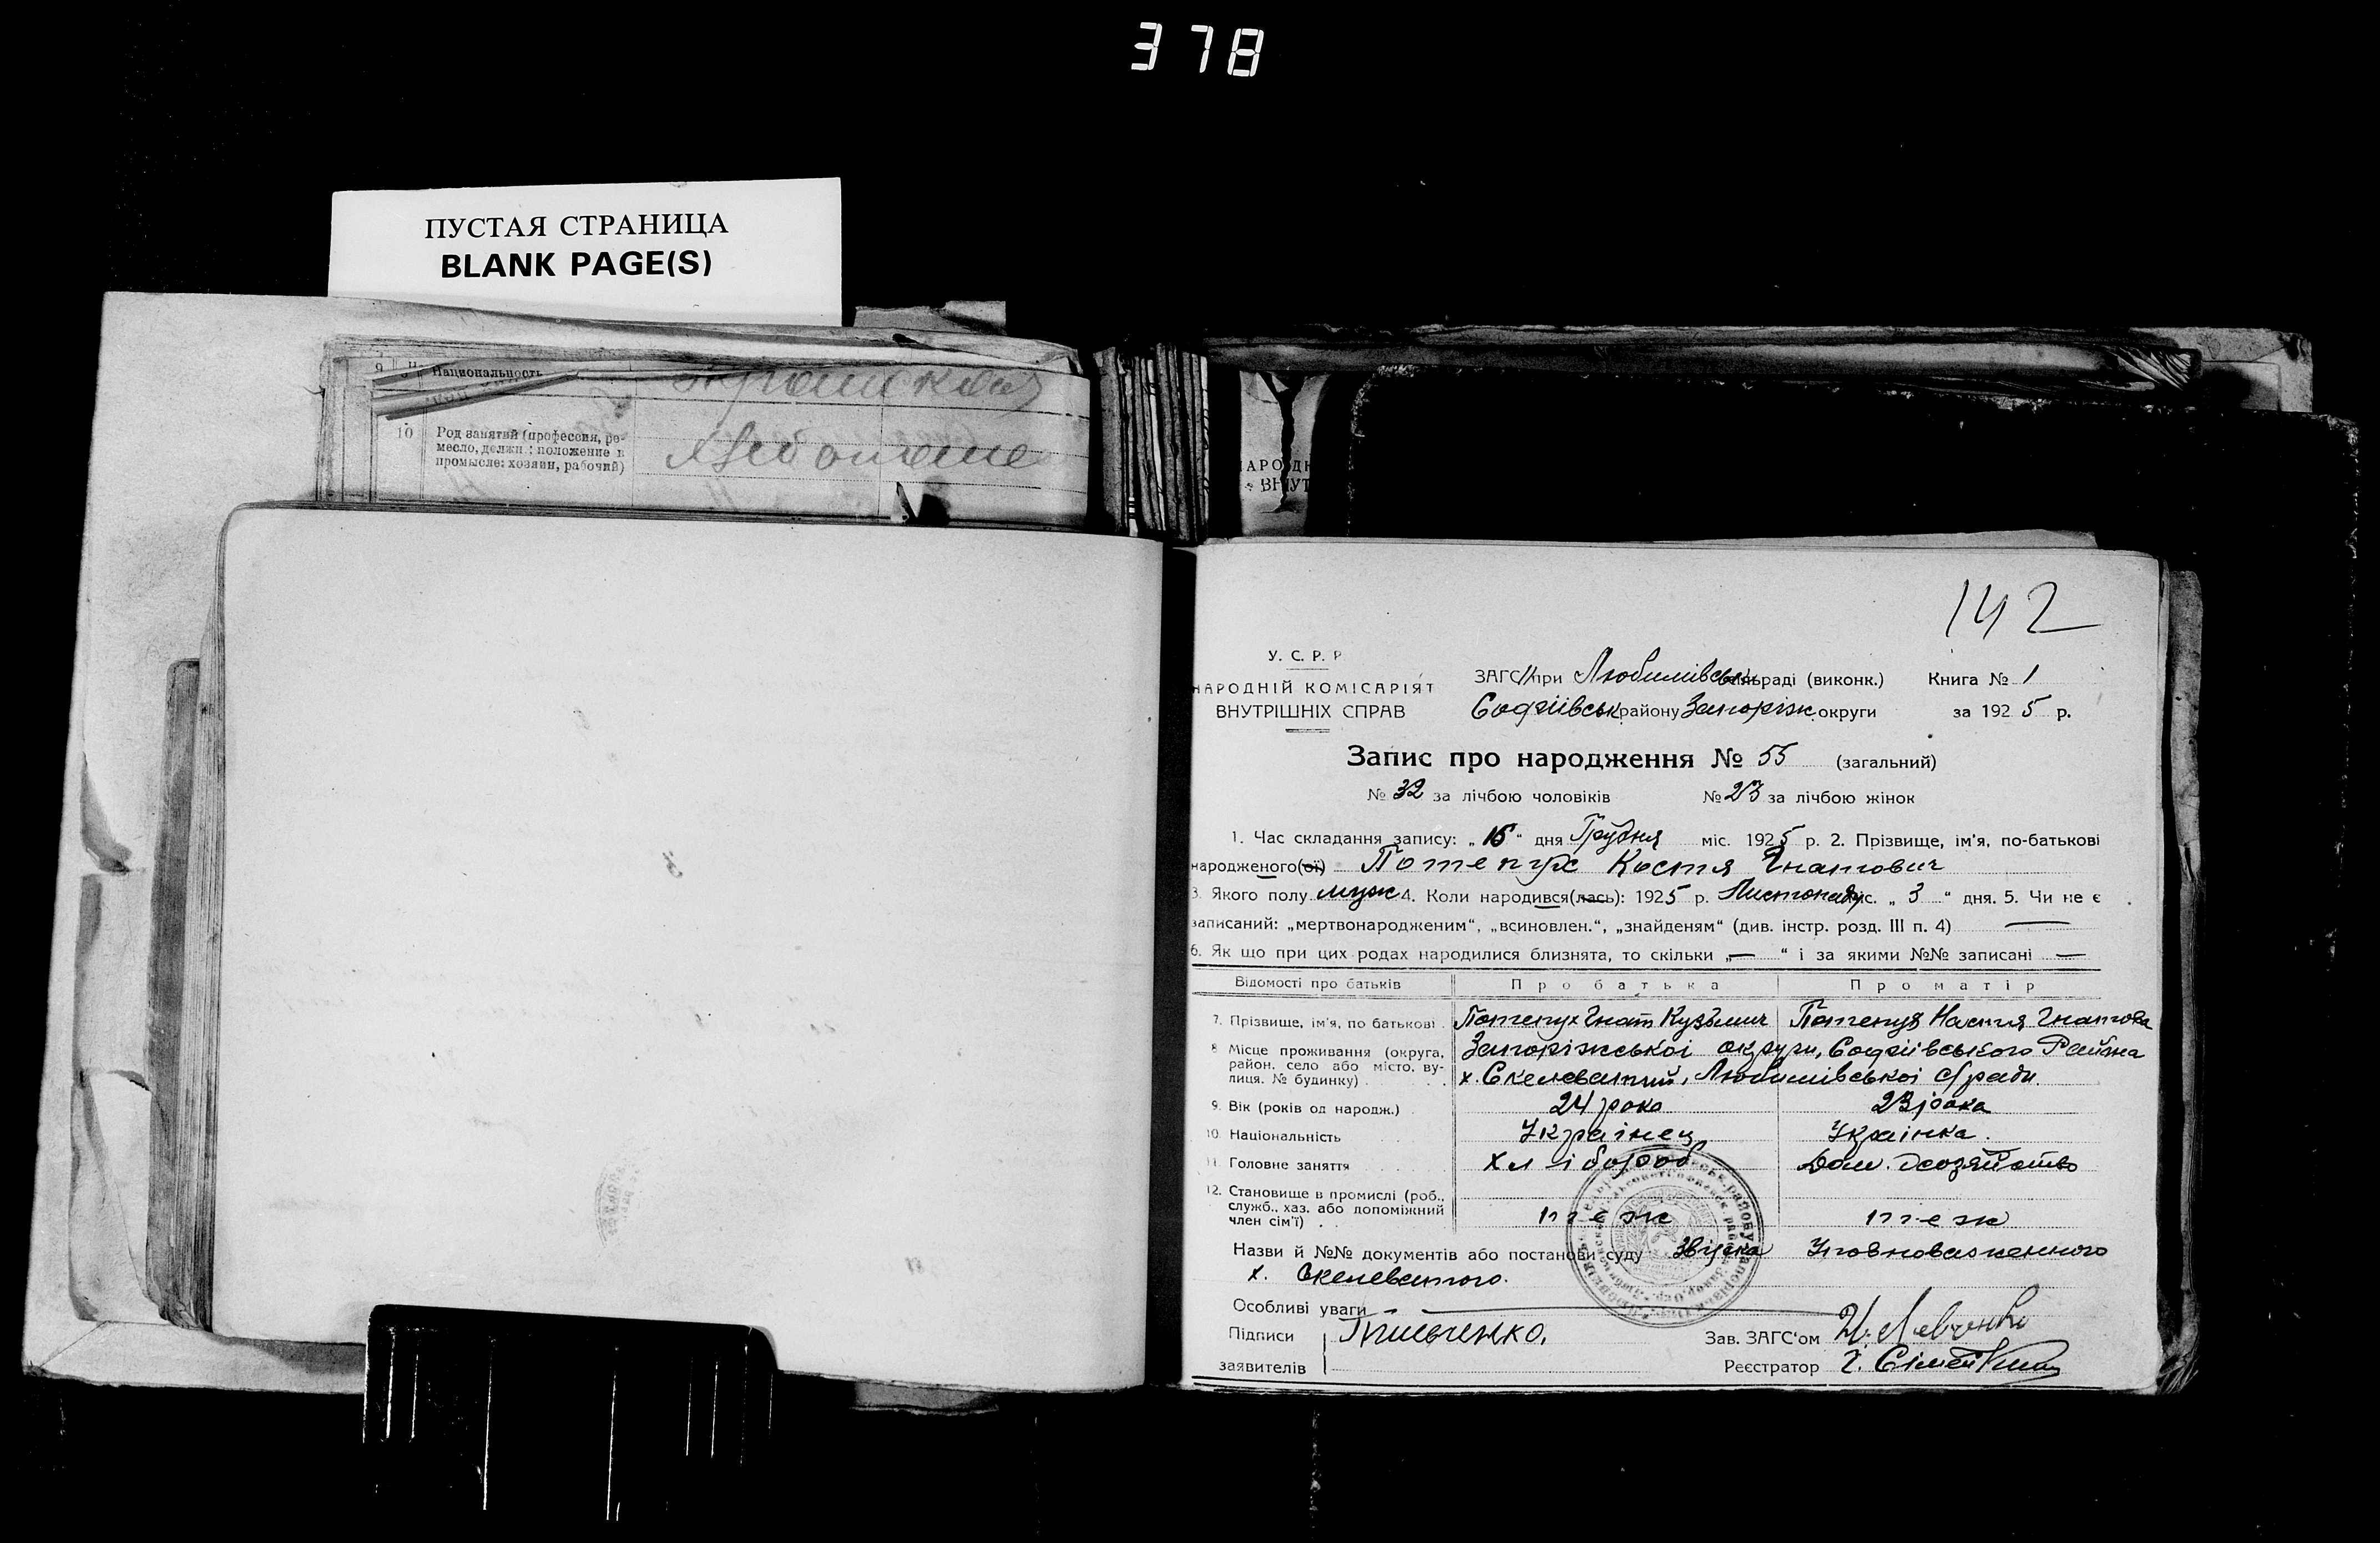 378
ПУСТАЯ СТРАНИЦА
BLANK PAGE(S)
9 Национальность
10 Род занятий (профессия, ре-
месло, должн.; положение в
промысле: хозяин, рабочий)
142
У. С. Р. Р
НАРОДНІЙ КОМІСАРІЯТ
ВНУТРІШНІХ СПРАВ
ЗАГС при Любимівськ раді (виконк.) Книга № 1
Софіївськ району Запоріж. округи за 1925 р.
Запис про народження № 55 (загальний)
№ 32 за лічбою чоловіків № 23 за лічбою жінок
1. Час складання запису: „15“ дня Грудня міс. 1925 р. 2. Прізвище, ім'я, по-батькові
народженого(ої) Потепух Костя Гнатович
3. Якого полу муж 4. Коли народився(лась): 1925 р. Листопаду міс. „ 3 “ дня. 5. Чи не є
записаний: „мертвонародженим“, „всиновлен.“, „знайденям“ (див. інстр. розд. III п. 4) —
6. Як що при цих родах народилися близнята, то скільки „ — “ і за якими №№ записані —
Відомості про батьків Про батька Про матір
7. Прізвище, ім'я, по батькові Потепух Гнат Кузьмич Потепух Настя Гнатова
8 Місце проживання (округа, район, село або місто, ву- лиця, № будинку) Запоріжської округи, Софіївського Района
х. Скелеватий, Любимівської с/ради
9. Вік (років од народж.) 24 роко 23 рока
10. Національність Українец Українка.
11. Головне заняття хлібороб Дом. хозяйство
12. Становище в промислі (роб.,
служб., хаз. або допоміжний
член сім'ї) теж теж
Назви й №№ документів або постанови суду Звістка Уповноваженного
х. Скелеватого.
Особливі уваги —
Підписи Зав. ЗАГС'ом И. Левченко
заявителів Реєстратор